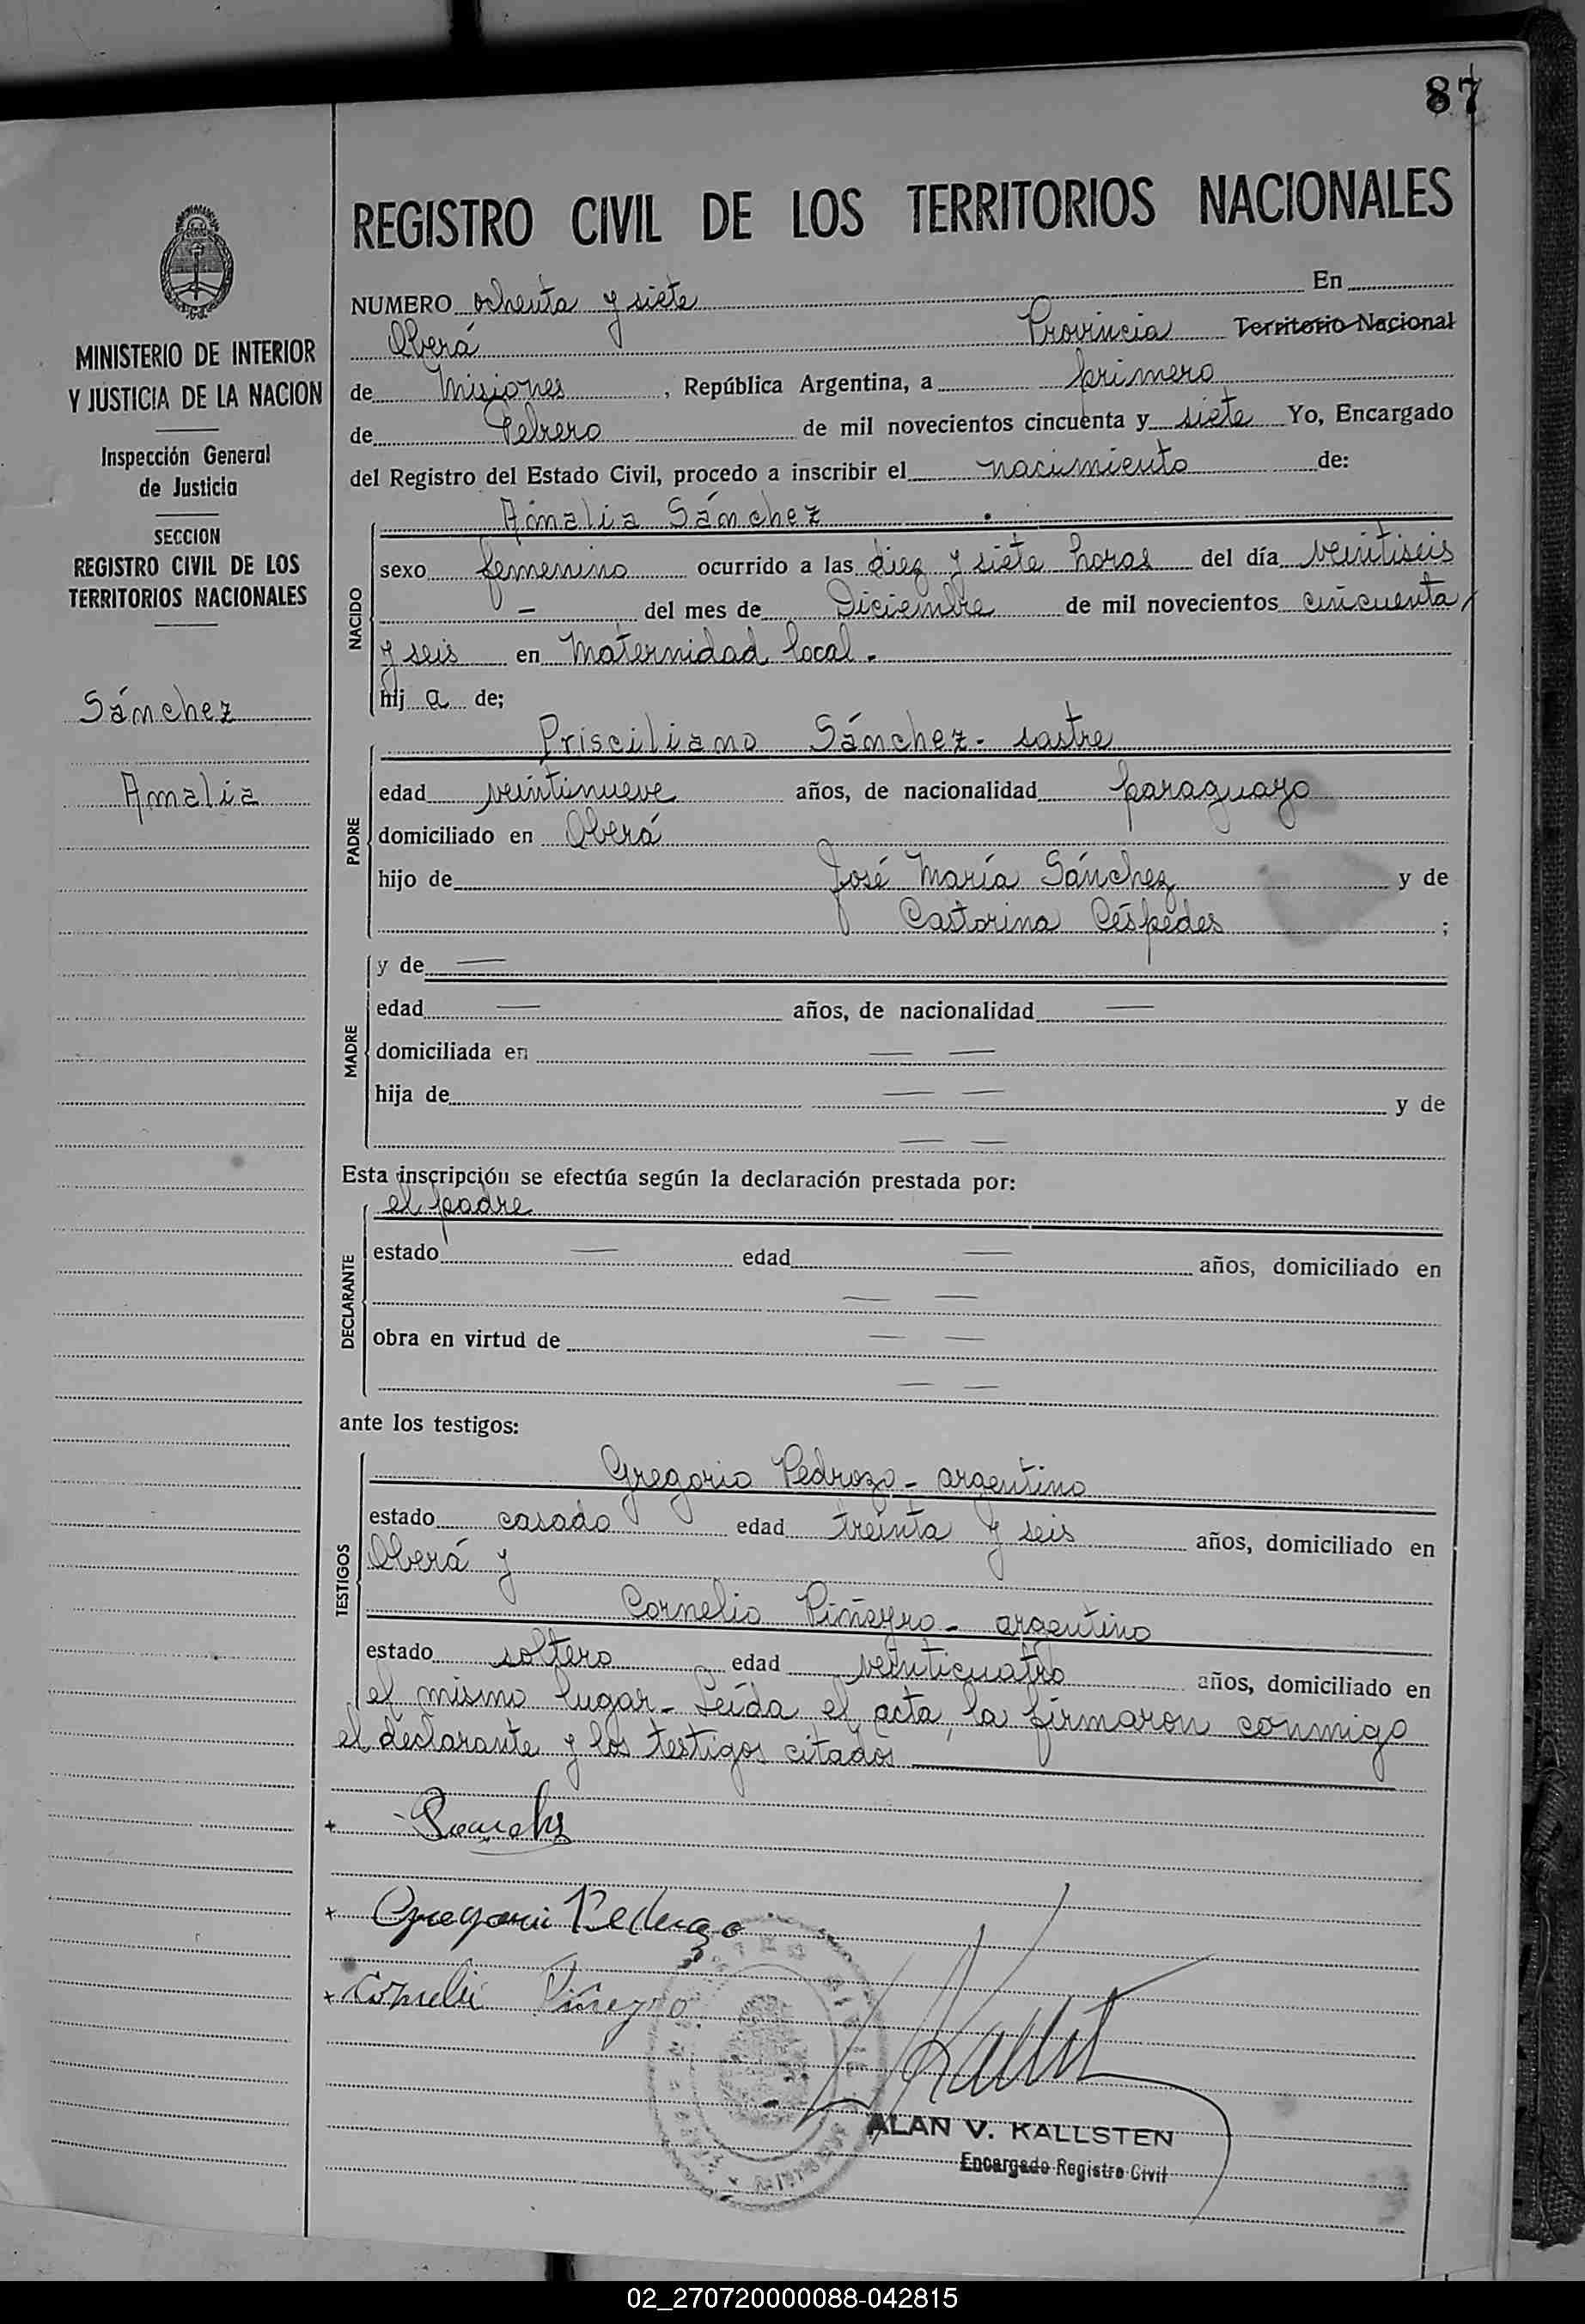 87
REGISTRO CIVIL DE LOS TERRITORIOS NACIONALES
MINISTERIO DE INTERIOR
Y JUSTICIA DE LA NACION
Inspección General
de Justicia
SECCION
REGISTRO CIVIL DE LOS
TERRITORIOS NACIONALES
Sánchez
Amalia
NUMERO ochenta y siete En
Oberá Provincia Territorio Nacional
de Misiones, República Argentina, a primero
de Febrero de mil novecientos cincuenta y siete Yo, Encargado
del Registro del Estado Civil, procedo a inscribir el nacimiento de:
Amalia Sánchez
NACIDO
sexo femenino ocurrido a las diez y siete horas del día veintiseis
— del mes de Diciembre de mil novecientos cincuenta
y seis en Maternidad local.
hij a de;
Prisciliano Sánchez - sastre
PADRE
edad veintinueve años, de nacionalidad paraguayo
domiciliado en Oberá
hijo de José María Sánchez y de
Castorina Céspedes ;
MADRE
y de —
edad — años, de nacionalidad —
domiciliada en — —
hija de — — y de
— —
Esta inscripción se efectúa según la declaración prestada por:
el padre
DECLARANTE
estado — edad — años, domiciliado en
— —
obra en virtud de — —
— —
ante los testigos:
TESTIGOS
Gregorio Pedrozo - argentino
estado casado edad treinta y seis años, domiciliado en
Oberá y
Cornelio Piñeyro - argentino
estado soltero edad veinticuatro años, domiciliado en
el mismo lugar - Leída el acta, la firmaron conmigo
el declarante y los testigos citados
Gregorio Pedrozo
Cornelio Piñeyro
ALAN V. KALLSTEN
Encargado Registro Civil
02_270720000088-042815